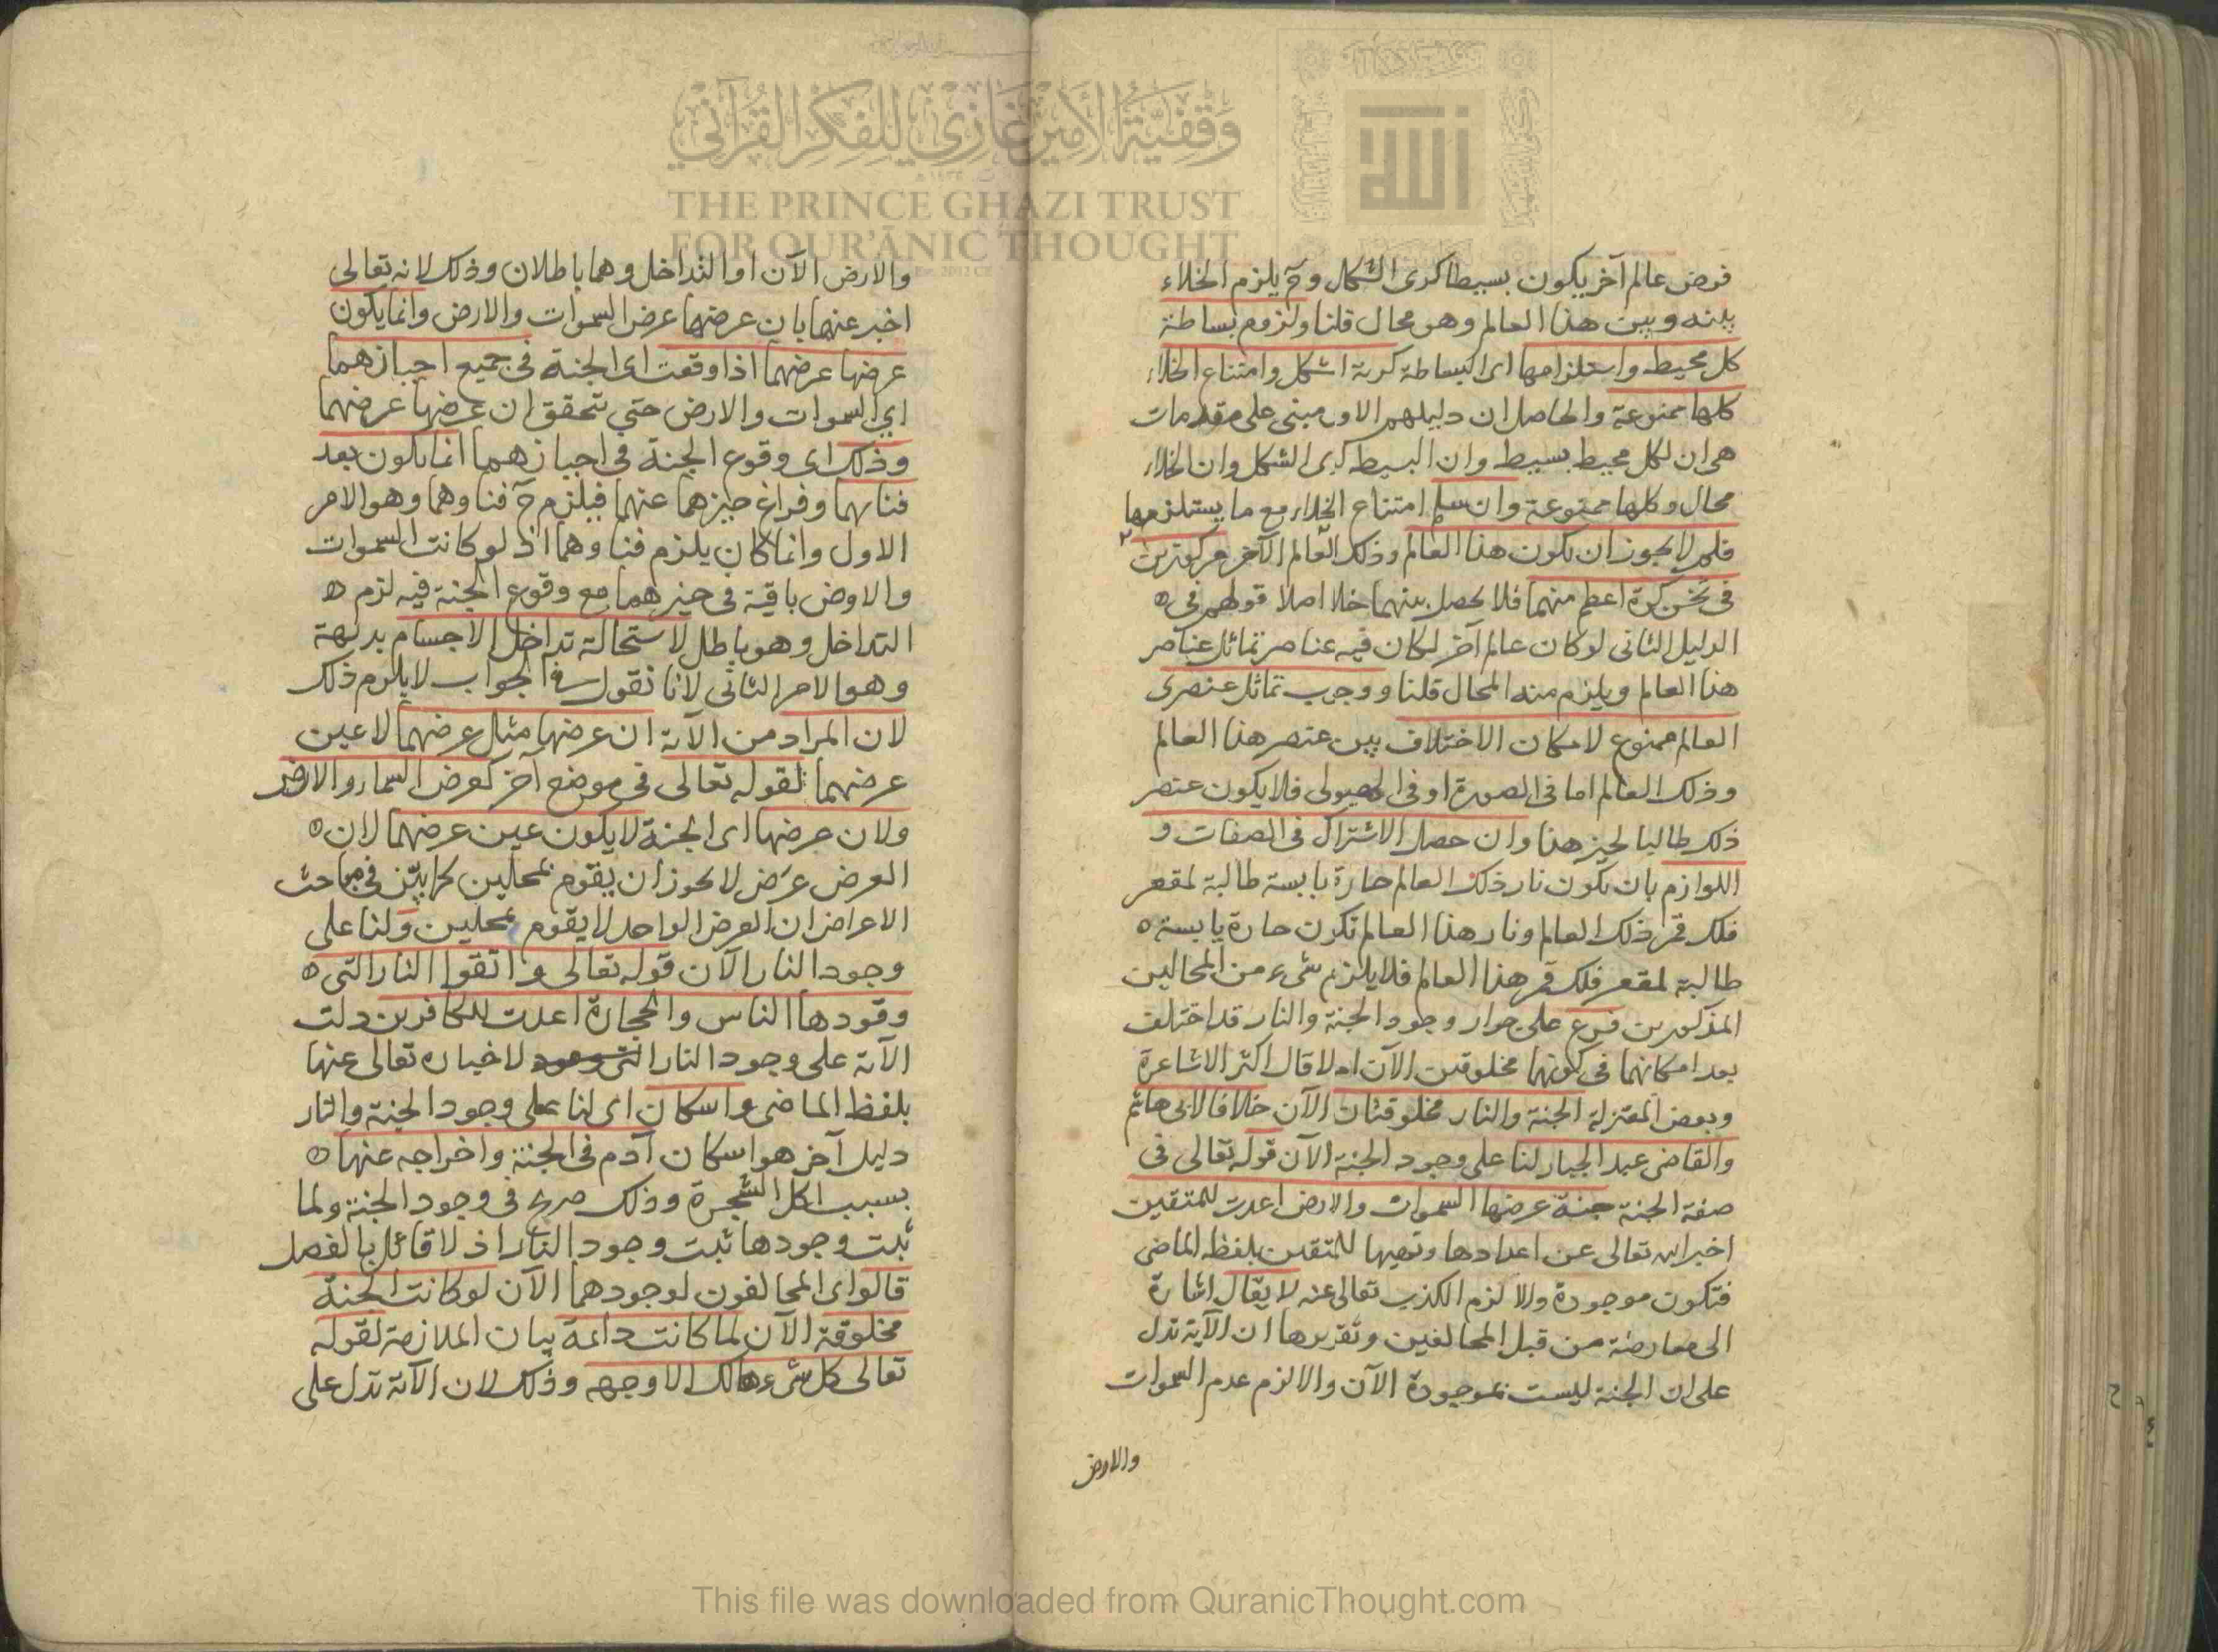 فرض عالم آخر يكون بسيطا كرى الشكل وح يلزم الخلاء
بينه وبين هذا العالم وهو محال قلنا ولزوم بساطة
كل محيط واستلزامها اى البساطة كرية الشكل وامتناع الخلاء
كلها ممنوعة والحاصل ان دليلهم الاول مبنى على مقدمات
هى ان لكل محيط بسيط وان البسيط كرى الشكل وان الخلاء
محال وكلها ممنوعة وان سلم امتناع الخلاء مع ما يستلزمها
فلم لا يجوز ان يكون هذا العالم وذلك العالم الآخر مركوزين
فى ثخن كرة اعظم منهما فلا يحصل بينهما خلا اصلا قولهم فى ه
الدليل الثانى لو كان عالم آخر لكان فيه عناصر تماثل عناصر
هذا العالم ويلزم منه المحال قلنا ووجوب تماثل عنصرى
العالم ممنوع لامكان الاختلاف بين عنصر هذا العالم
وذلك العالم اما فى الصورة او فى الهيولى فلا يكون عنصر
ذلك طالبا لحيز هذا وان حصل الاشتراك فى الصفات و
اللوازم بان يكون نار ذلك العالم حارة يابسة طالبة لمقعر
فلك قمر ذلك العالم ونار هذا العالم تكون حارة يابسة ه
طالبة لمقعر فلك قمر هذا العالم فلا يلزم شىء من المحالين
المذكورين فرع على جواز وجود الجنة والنار قد اختلف
بعد امكانهما فى كونهما مخلوقتين الآن ام لا قال اكثر الاشاعرة
وبعض المعتزلة الجنة والنار مخلوقتان الآن خلافا لابى هاشم
والقاضى عبد الجبار لنا على وجود الجنة الآن قوله تعالى فى
صفة الجنة جنة عرضها السموات والارض اعدت للمتقين
اخبر الله تعالى عن اعدادها وتهيها للمتقين بلفظ الماضى
فتكون موجودة والا لزم الكذب تعالى عنه لا يقال اشارة
الى معارضة من قبل المخالفين وتقريرها ان الآية تدل
على ان الجنة ليست بموجودة الآن والا لزم عدم السموات
والارض
والارض الآن او التداخل وهما باطلان وذلك لانه تعالى
اخبر عنهما بان عرضها عرض السموات والارض وانما يكون
عرضها عرضهما اذا وقعت اى الجنة فى جميع احيازهما
اي السموات والارض حتي تتحقق ان عرضها عرضهما
وذلك اى وقوع الجنة فى احيازهما انما يكون بعد
فنائهما وفراغ حيزهما عنهما فيلزم ح فناوهما وهو الامر
الاول وانما كان يلزم فناوهما اذ لو كانت السموات
والارض باقية فى حيزهما مع وقوع الجنة فيه لزم ه
التداخل وهو باطل لاستحالة تداخل الاجسام بديهة
وهو الامر الثانى لانا نقول فى الجواب لا يلزم ذلك
لان المراد من الآية ان عرضها مثل عرضهما لا عين
عرضهما لقوله تعالى فى موضع آخر كعرض السماء والارض
ولان عرضها اى الجنة لا يكون عين عرضهما لان ه
العرض عرض لا يجوز ان يقوم بمحلين كما بين فى مباحث
الاعراض ان العرض الواحد لا يقوم بمحلين ولنا على
وجود النار الآن قوله تعالى واتقوا النار التى ه
وقودها الناس والحجارة اعدت للكافرين دلت
الآية على وجود النار لاخباره تعالى عنها
بلفظ الماضى واسكان اى لنا على وجود الجنة والنار
دليل آخر هو اسكان آدم فى الجنة واخراجه عنها ه
بسبب اكل الشجرة وذلك صريح فى وجود الجنة ولما
ثبت وجودها ثبت وجود النار اذ لا قائل بالفصل
قالوا اى المخالفون لوجودهما الآن لو كانت الجنة
مخلوقة الآن لما كانت دائمة بيان الملازمة لقوله
تعالى كل شىء هالك الا وجهه وذلك لان الآية تدل على
وقفية الأمير غازي للفكر القرآني
THE PRINCE GHAZI TRUST
FOR QUR'ĀNIC THOUGHT
This file was downloaded from QuranicThought.com